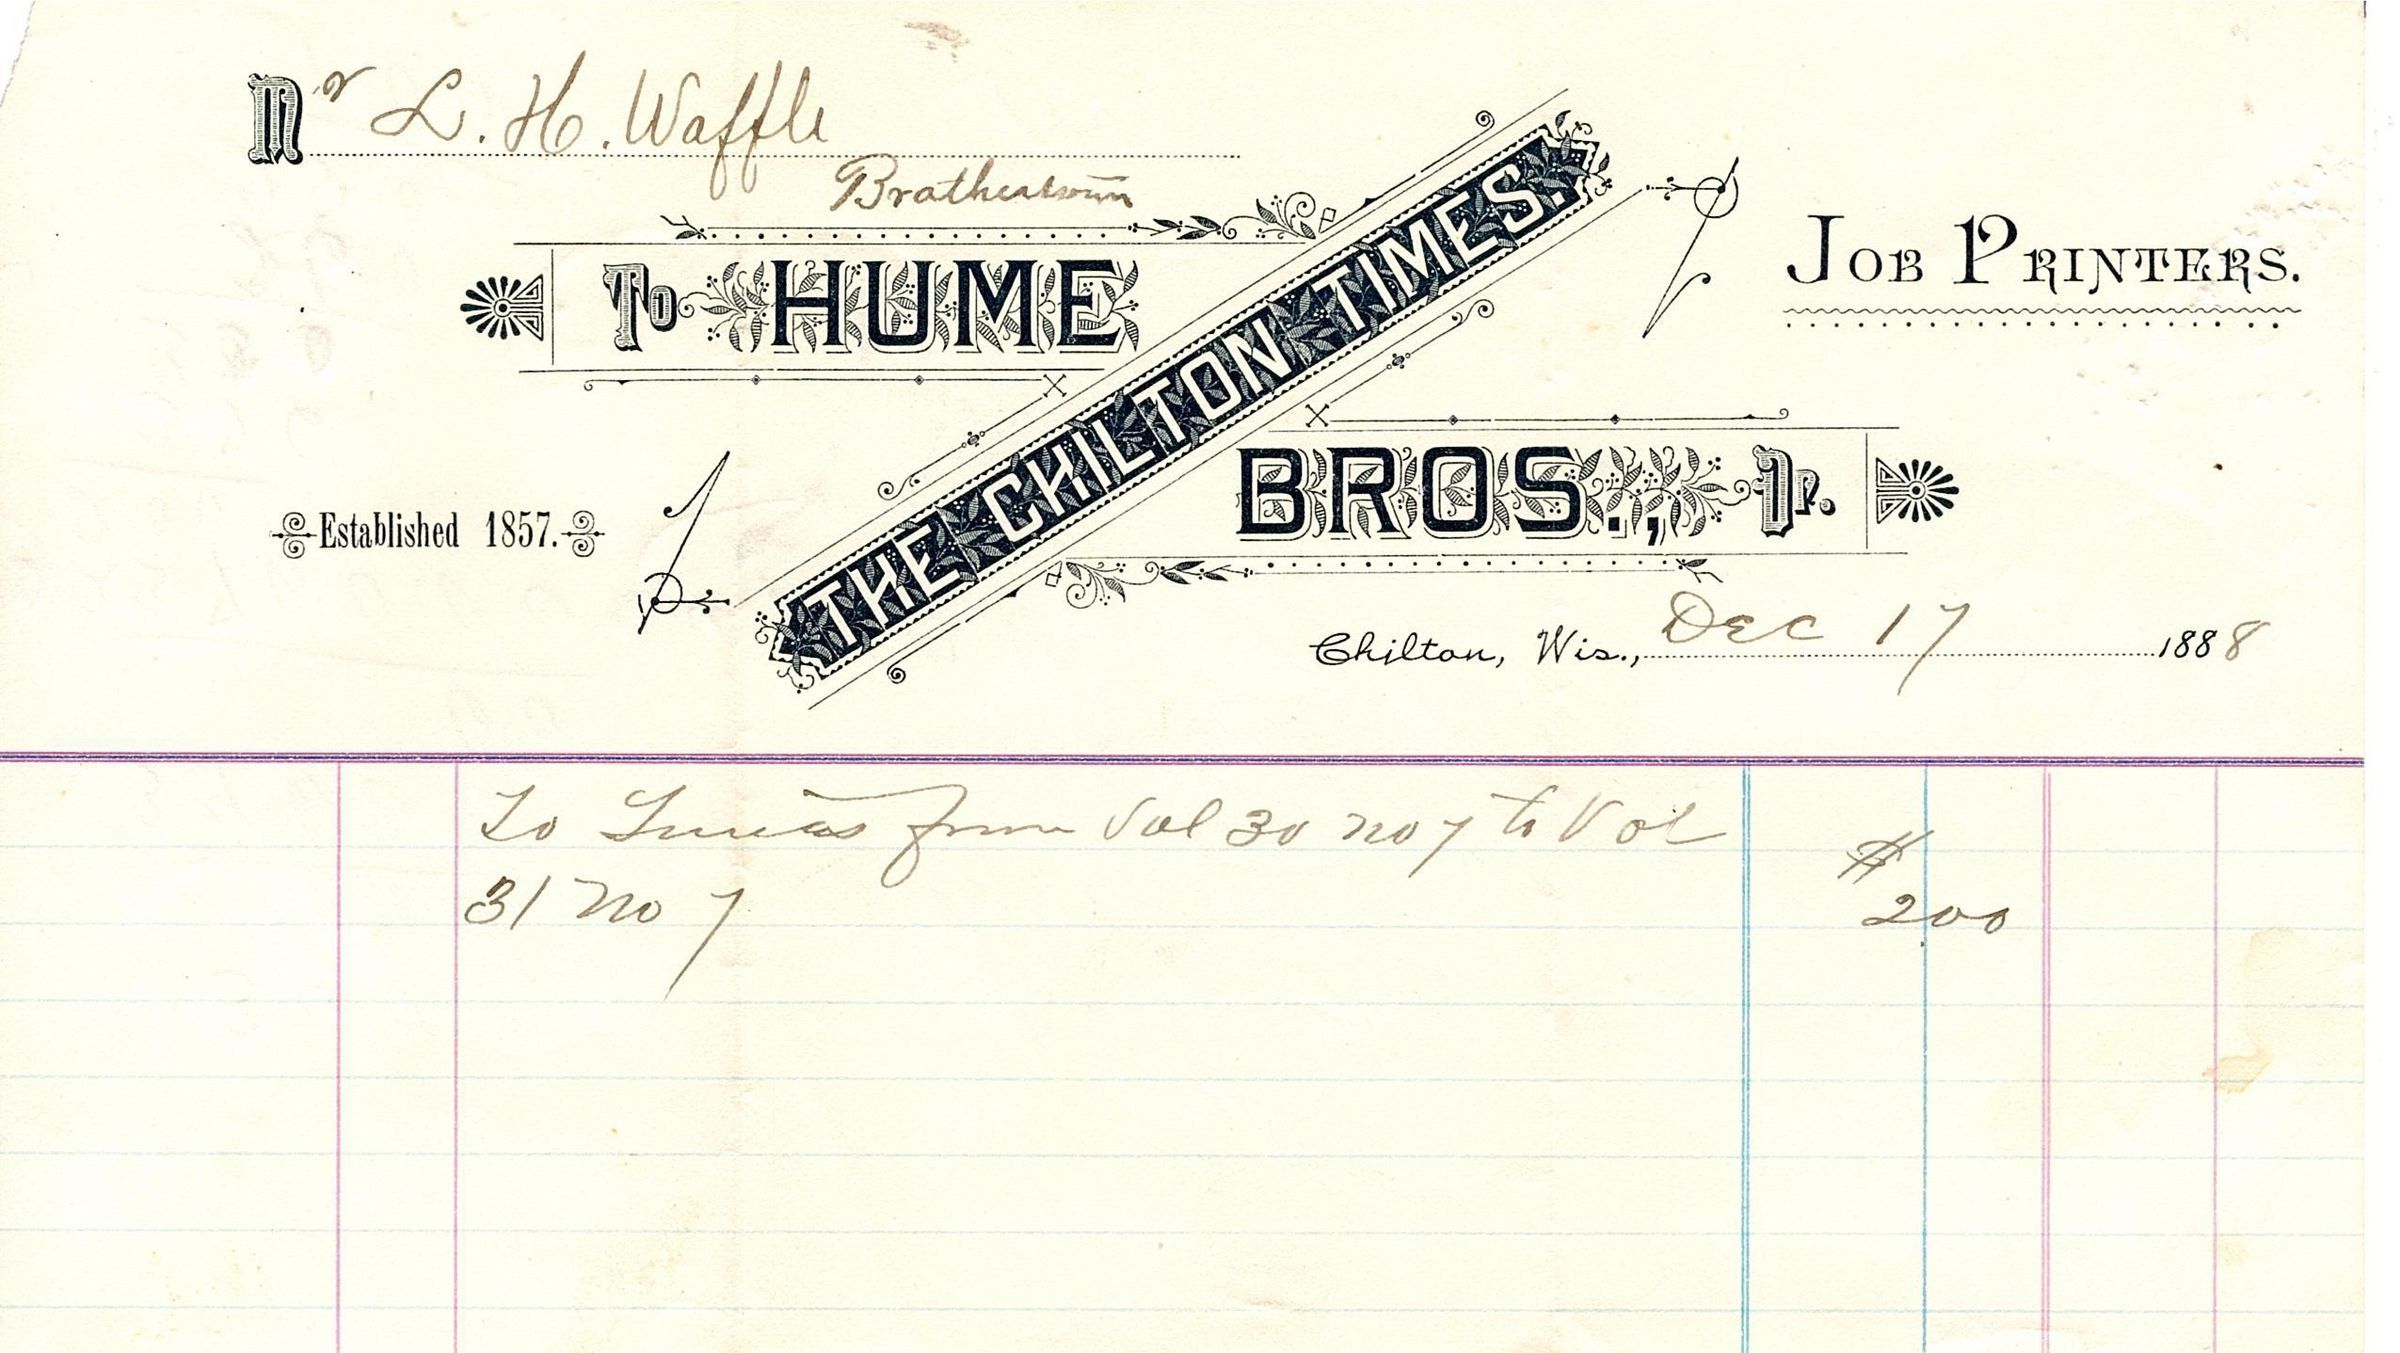 Mr L. H. Waffle
Brothertown
To HUME
THE CHILTON TIMES.
JOB PRINTERS.
BROS., Dr.
Established 1857.
Chilton, Wis., Dec 17 1888
To Times from Vol 30 no 7 to Vol
31 no 7
$
200